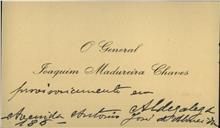 O General
Joaquim Madureira Chaves
provisoriamente em
Avenida Antonio
188 José d'Almeida